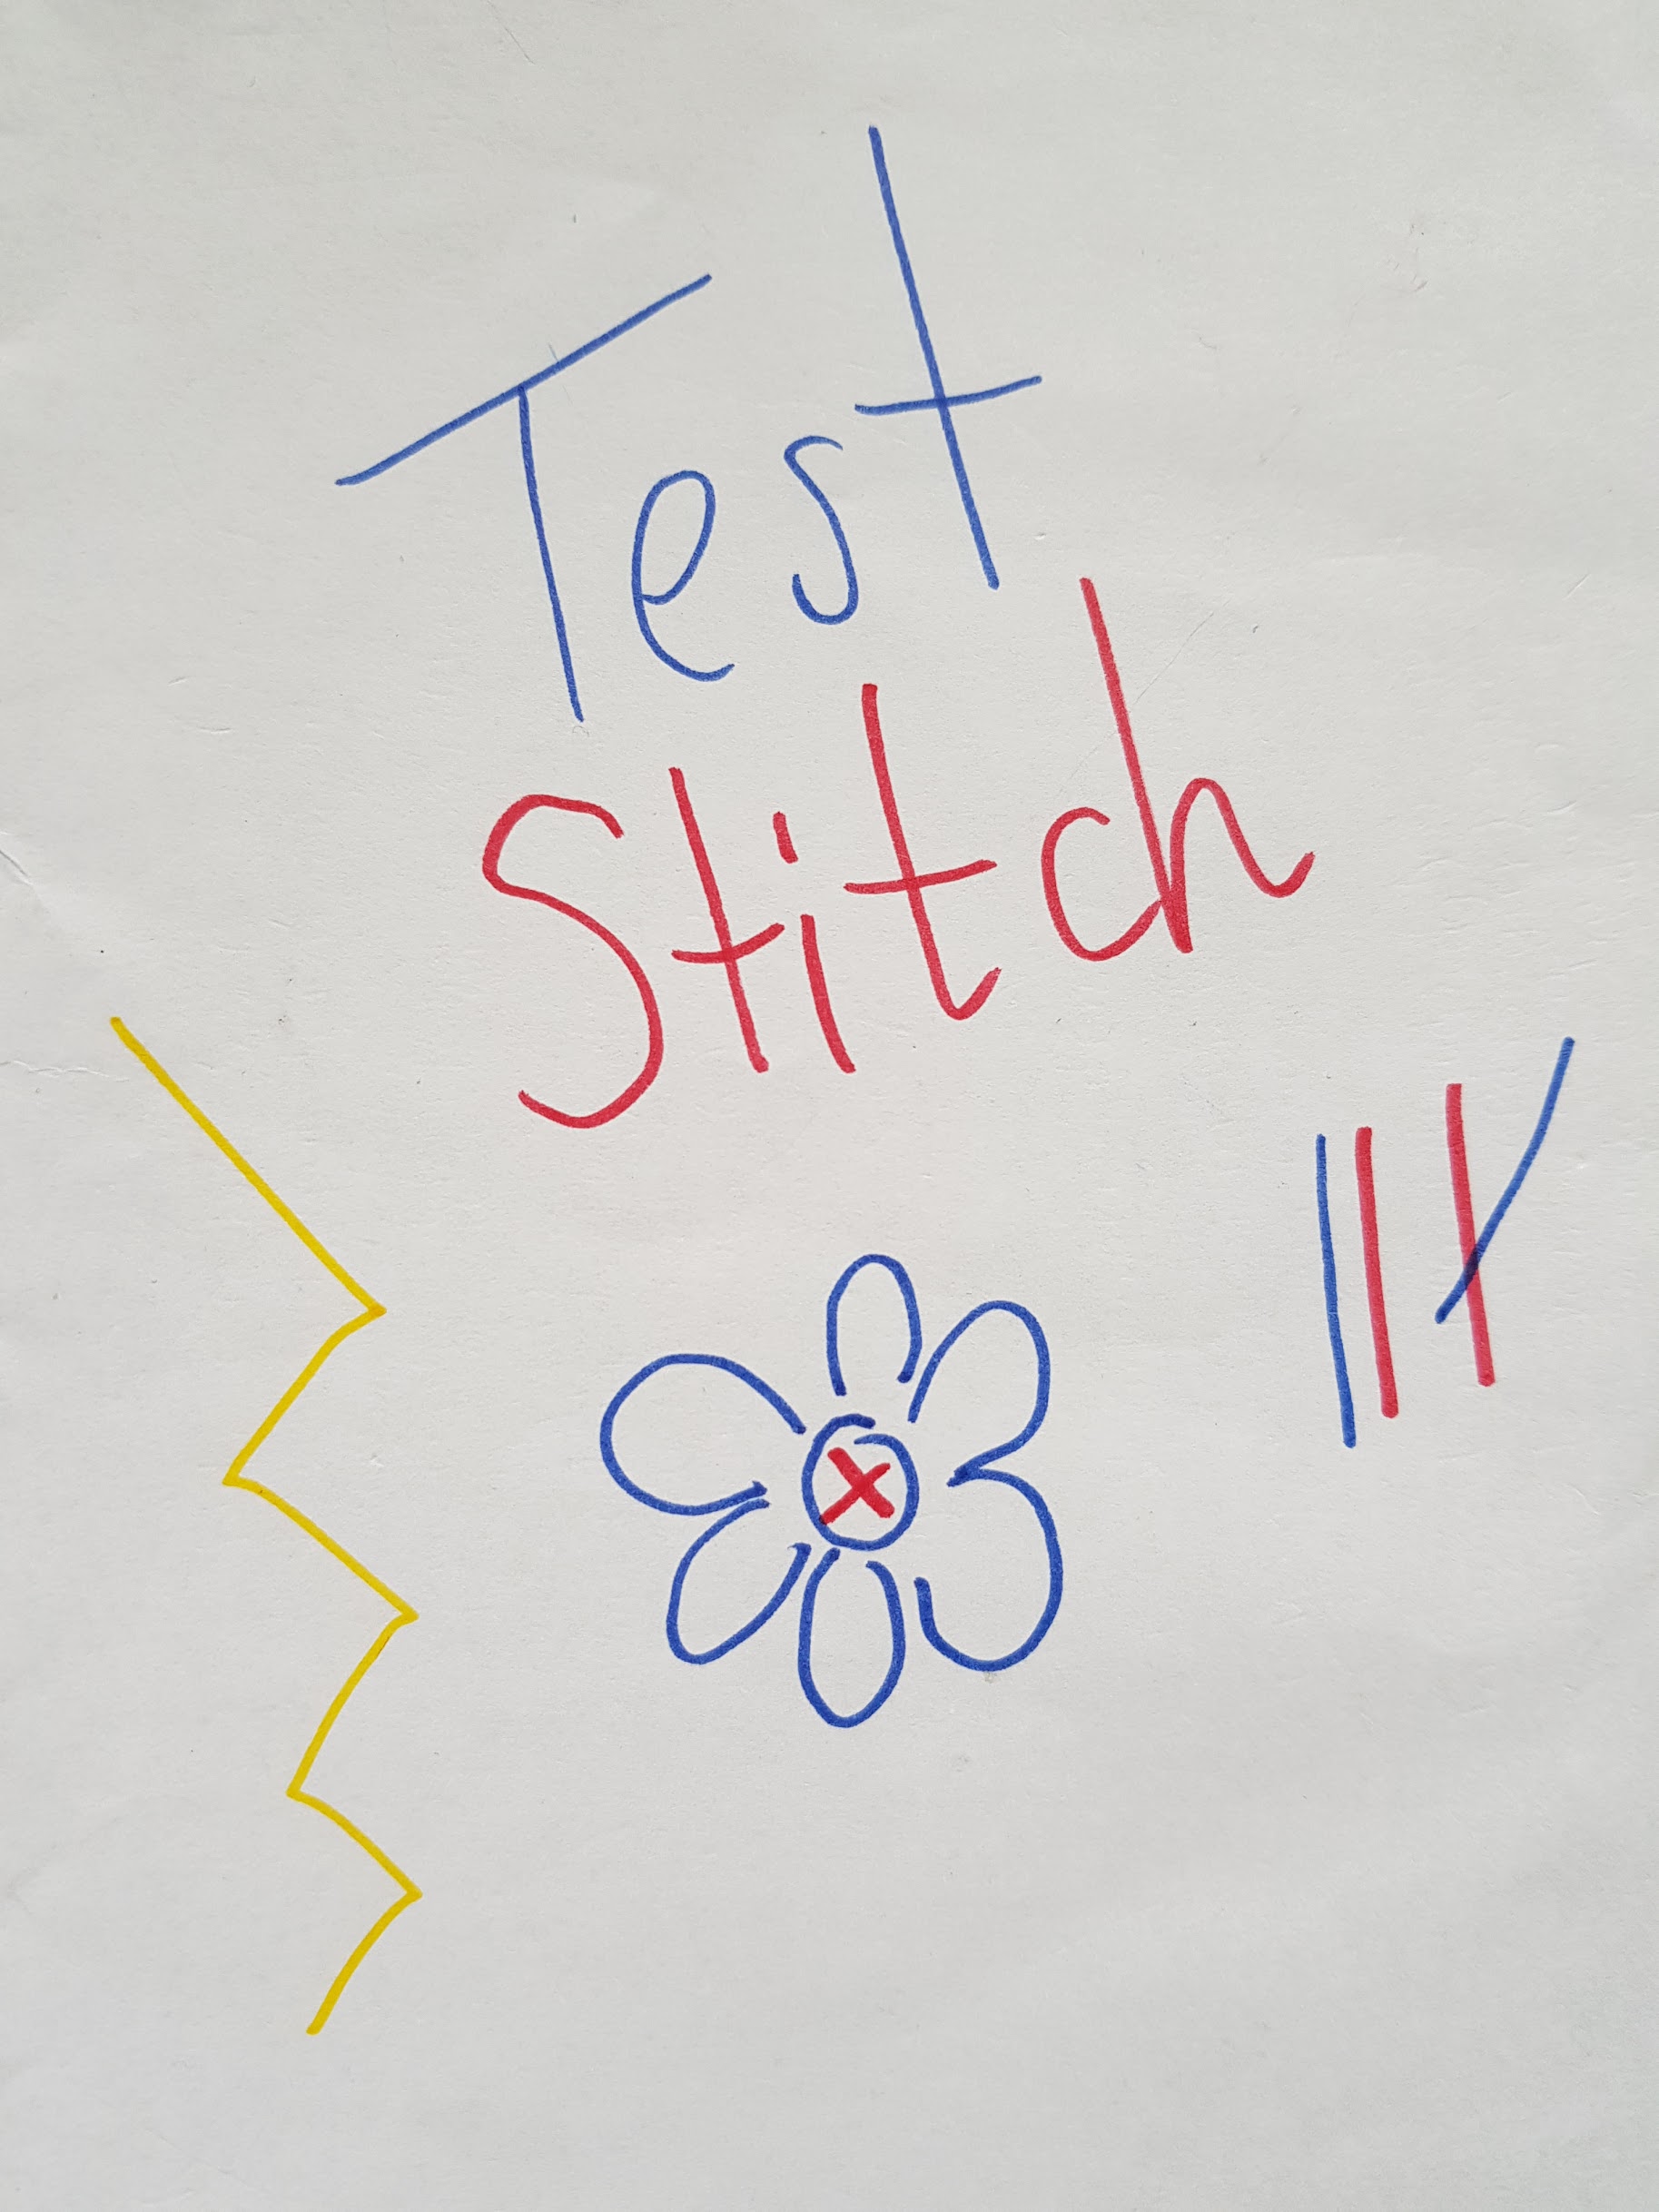 Test
Stitch